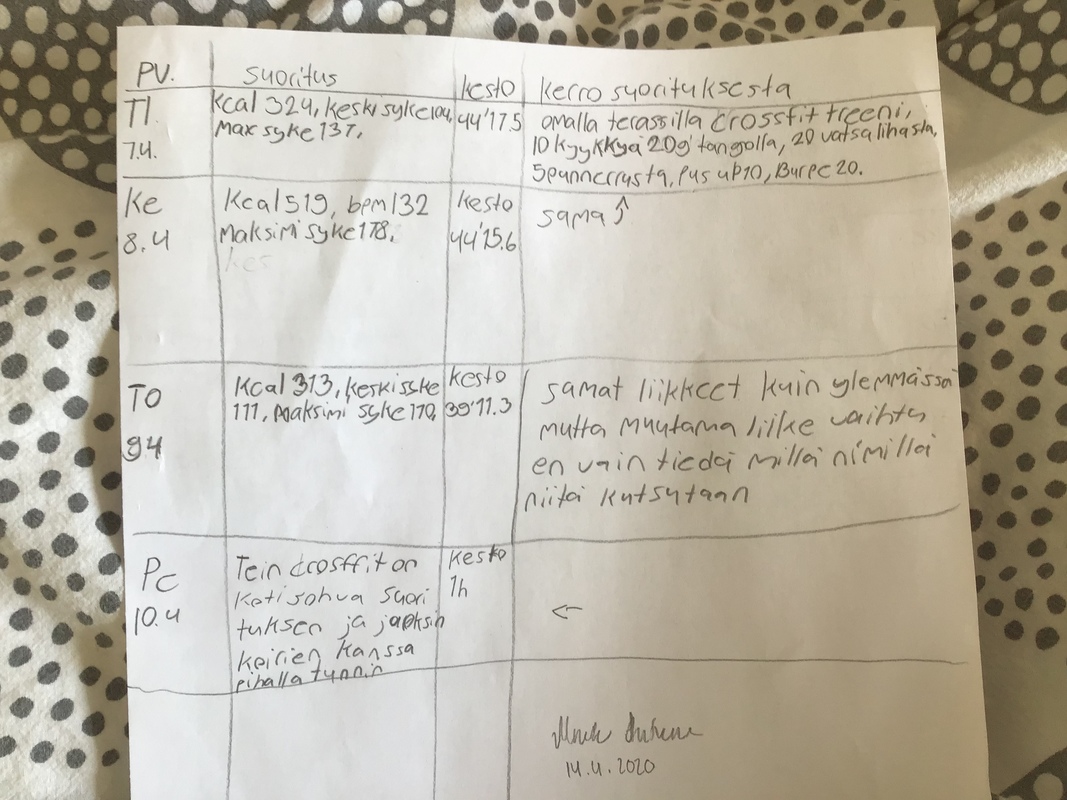 PV. suoritus kesto kerro suorituksesta
TI 7.4. kcal 324, keskisyke104, 44'17.5 omalla terassilla crossfit treeni,
max syke 137, 10 kyykkyä 20g tangolla, 20 vatsalihasta,
5punnerrusta, pus up10, Burpe 20.
Ke kcal 519, bpm 132 kesto sama
8.4 Maksimi syke 178, 44'15.6
kes
TO kcal 313, keskisyke kesto samat liikkeet kuin ylemmässä
94 111, Maksimi syke 170, 39'11.3 mutta muutama liike vaihtu
en vain tiedä millä nimillä
niitä kutsutaan
Pe Tein crosffit on kesto
10.4 kotisohva suori 1h
tuksen ja jaoksin
koirien kanssa
pihalla tunnin
14.4.2020